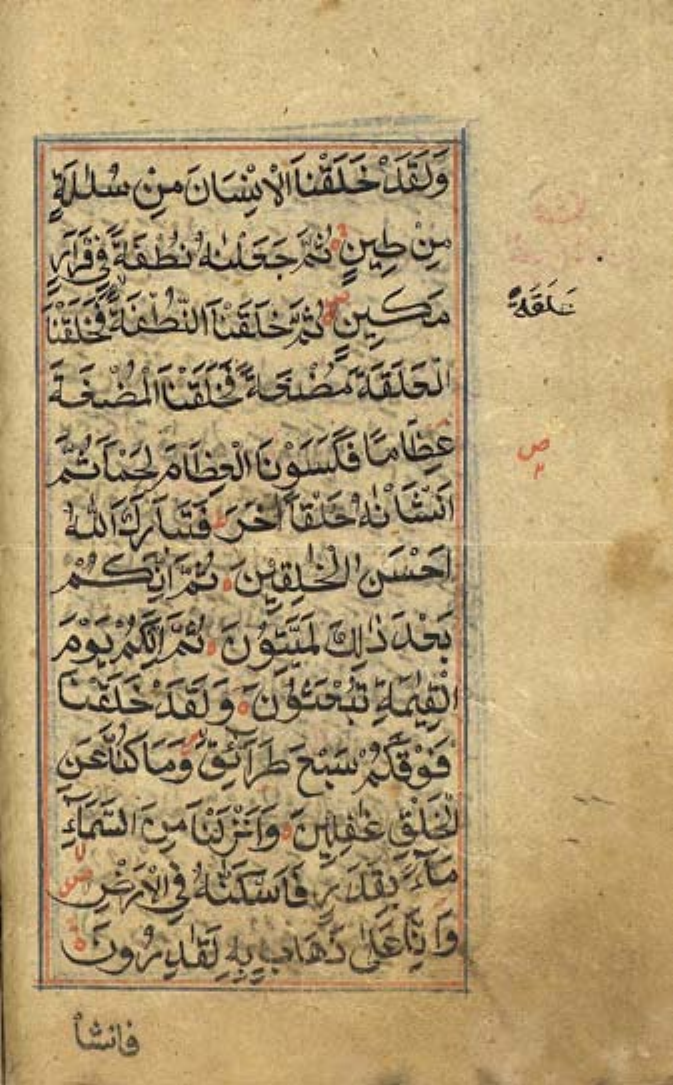 وَلَقَدْ خَلَقْنَا الْاِنْسَانَ مِنْ سُلٰلَةٍ
مِنْ طِينٍ ثُمَّ جَعَلْنٰهُ نُطْفَةً فِي قَرَارٍ
مَكِينٍ ثُمَّ خَلَقْنَا النُّطْفَةَ فَخَلَقْنَا
عَلَقَةً
الْعَلَقَةَ مُضْغَةً فَخَلَقْنَا الْمُضْغَةَ
عِظَامًا فَكَسَوْنَا الْعِظَامَ لَحْمًا ثُمَّ
ص
اَنْشَاْنٰهُ خَلْقًا اٰخَرَ ط فَتَبَارَكَ اللّٰهُ
اَحْسَنُ الْخٰلِقِيْنَ ثُمَّ اِنَّكُمْ
بَعْدَ ذٰلِكَ لَمَيِّتُوْنَ ثُمَّ اِنَّكُمْ يَوْمَ
الْقِيٰمَةِ تُبْعَثُوْنَ وَلَقَدْ خَلَقْنَا
فَوْقَكُمْ سَبْعَ طَرَآئِقَ وَمَا كُنَّا عَنِ
الْخَلْقِ غٰفِلِيْنَ وَاَنْزَلْنَا مِنَ السَّمَآءِ
مَآءً بِقَدَرٍ فَاَسْكَنّٰهُ فِي الْاَرْضِ
وَاِنَّا عَلٰى ذَهَابٍ بِهٖ لَقٰدِرُوْنَ
فانشأ